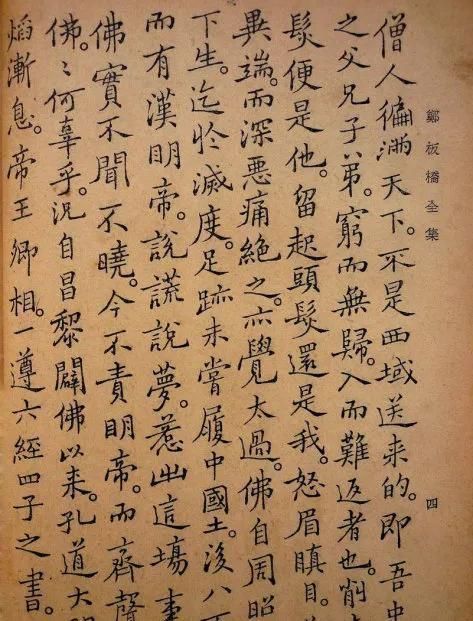 鄭板橋全集
四
僧人徧滿天下。不是西域送来的。即吾中
之父兄子弟。窮而無歸。入而難返者也。削
髮便是他。留起頭髮還是我。怒眉瞋目。
異端。而深悪痛絶之。亦覺太過。佛自周昭
下生。迄於滅度。足跡未嘗履中國土。後八
而有漢明帝。說謊說夢。惹出這場事
佛實不聞不曉。今不責明帝。而齊聲
佛。〻何辜乎。況自昌黎闢佛以来。孔道大
焰漸息。帝王卿相。一遵六經四子之書。